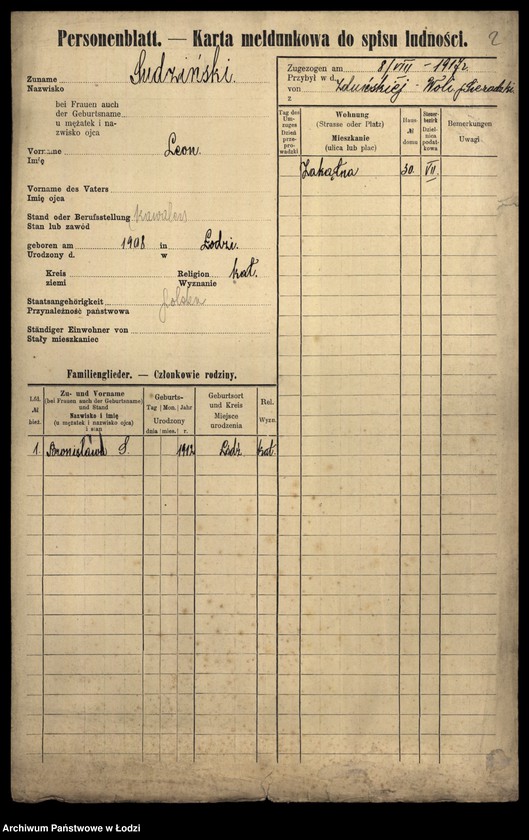 Personenblatt. — Karta meldunkowa do spisu ludności.
2
Zuname Sudziński.
Nazwisko
bei Frauen auch
der Geburtsname
u mężatek i na-
zwisko ojca
Vorname Leon.
Imię
Vorname des Vaters
Imię ojca
Stand oder Berufsstellung kawaler
Stan lub zawód
geboren am 1908 in Łodzi.
Urodzony d. w
Kreis Religion kat.
ziemi Wyznanie
Staatsangehörigkeit
Przynależność państwowa
Ständiger Einwohner von
Stały mieszkaniec
Familienglieder. — Członkowie rodziny.
Lfd. № bież.
Zu- und Vorname
(bei Frauen auch der Geburtsname)
und Stand
Nazwisko i imię
(u mężatek i nazwisko ojca)
i stan
Geburts-
Tag Mon. Jahr
Urodzony
dnia mies. r.
Geburtsort
und Kreis
Miejsce
urodzenia
Rel.
Wyzn.
1. Bronisława S. 1912 Łódź kat.
Zugezogen am 8/VIII - 1917 r.
Przybył w d.
von Zduńskiej - Woli p. Sieradzki
z
Tag des Um-zuges
Dzień prze-pro-wadzki
Wohnung
(Strasse oder Platz)
Mieszkanie
(ulica lub plac)
Haus-
№
domu
Steuer-
bezirk
Dziel-
nica
podat-
kowa
Bemerkungen
Uwagi
Zakątna 30. VII.
Archiwum Państwowe w Łodzi